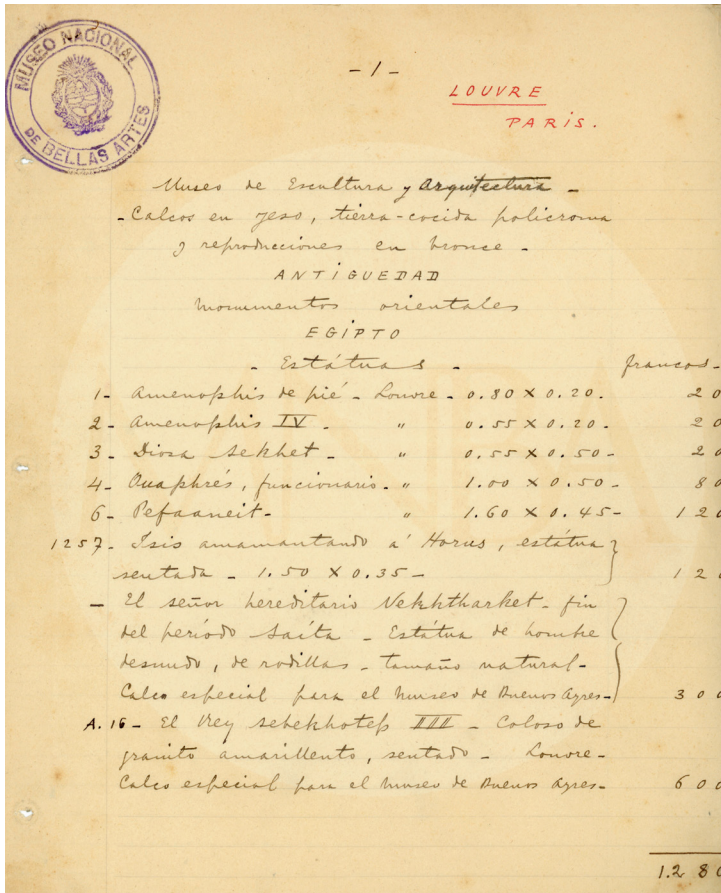 MUSEO NACIONAL
DE BELLAS ARTES
- 1 -
LOUVRE
PARIS.
Museo de Escultura y Arquitectura -
- Calcos en yeso, tierra-cocida policroma
y reproducciones en bronce -
ANTIGUEDAD
Monumentos orientales
EGIPTO
- Estátuas - francos -
1 - Amenophis de pié - Louvre - 0.80 X 0.20 - 20
2 - Amenophis IV - " 0.55 X 0.20 - 20
3 - Diosa Sekhet - " 0.55 X 0.50 - 20
4 - Ouaphrés, funcionario - " 1.00 X 0.50 - 80
6 - Pefaaneit - " 1.60 X 0.45 - 120
1257 - Isis amamantando á Horus, estátua
sentada - 1.50 X 0.35 - 120
- El señor hereditario Nekhtharket - fin
del período Saíta - Estátua de hombre
desnudo, de rodillas - tamaño natural -
Calco especial para el Museo de Buenos Ayres - 300
A. 16 - El Rey Sebekhotep III - Coloso de
granito amarillento, sentado - Louvre -
Calco especial para el Museo de Buenos Ayres - 600
1.280